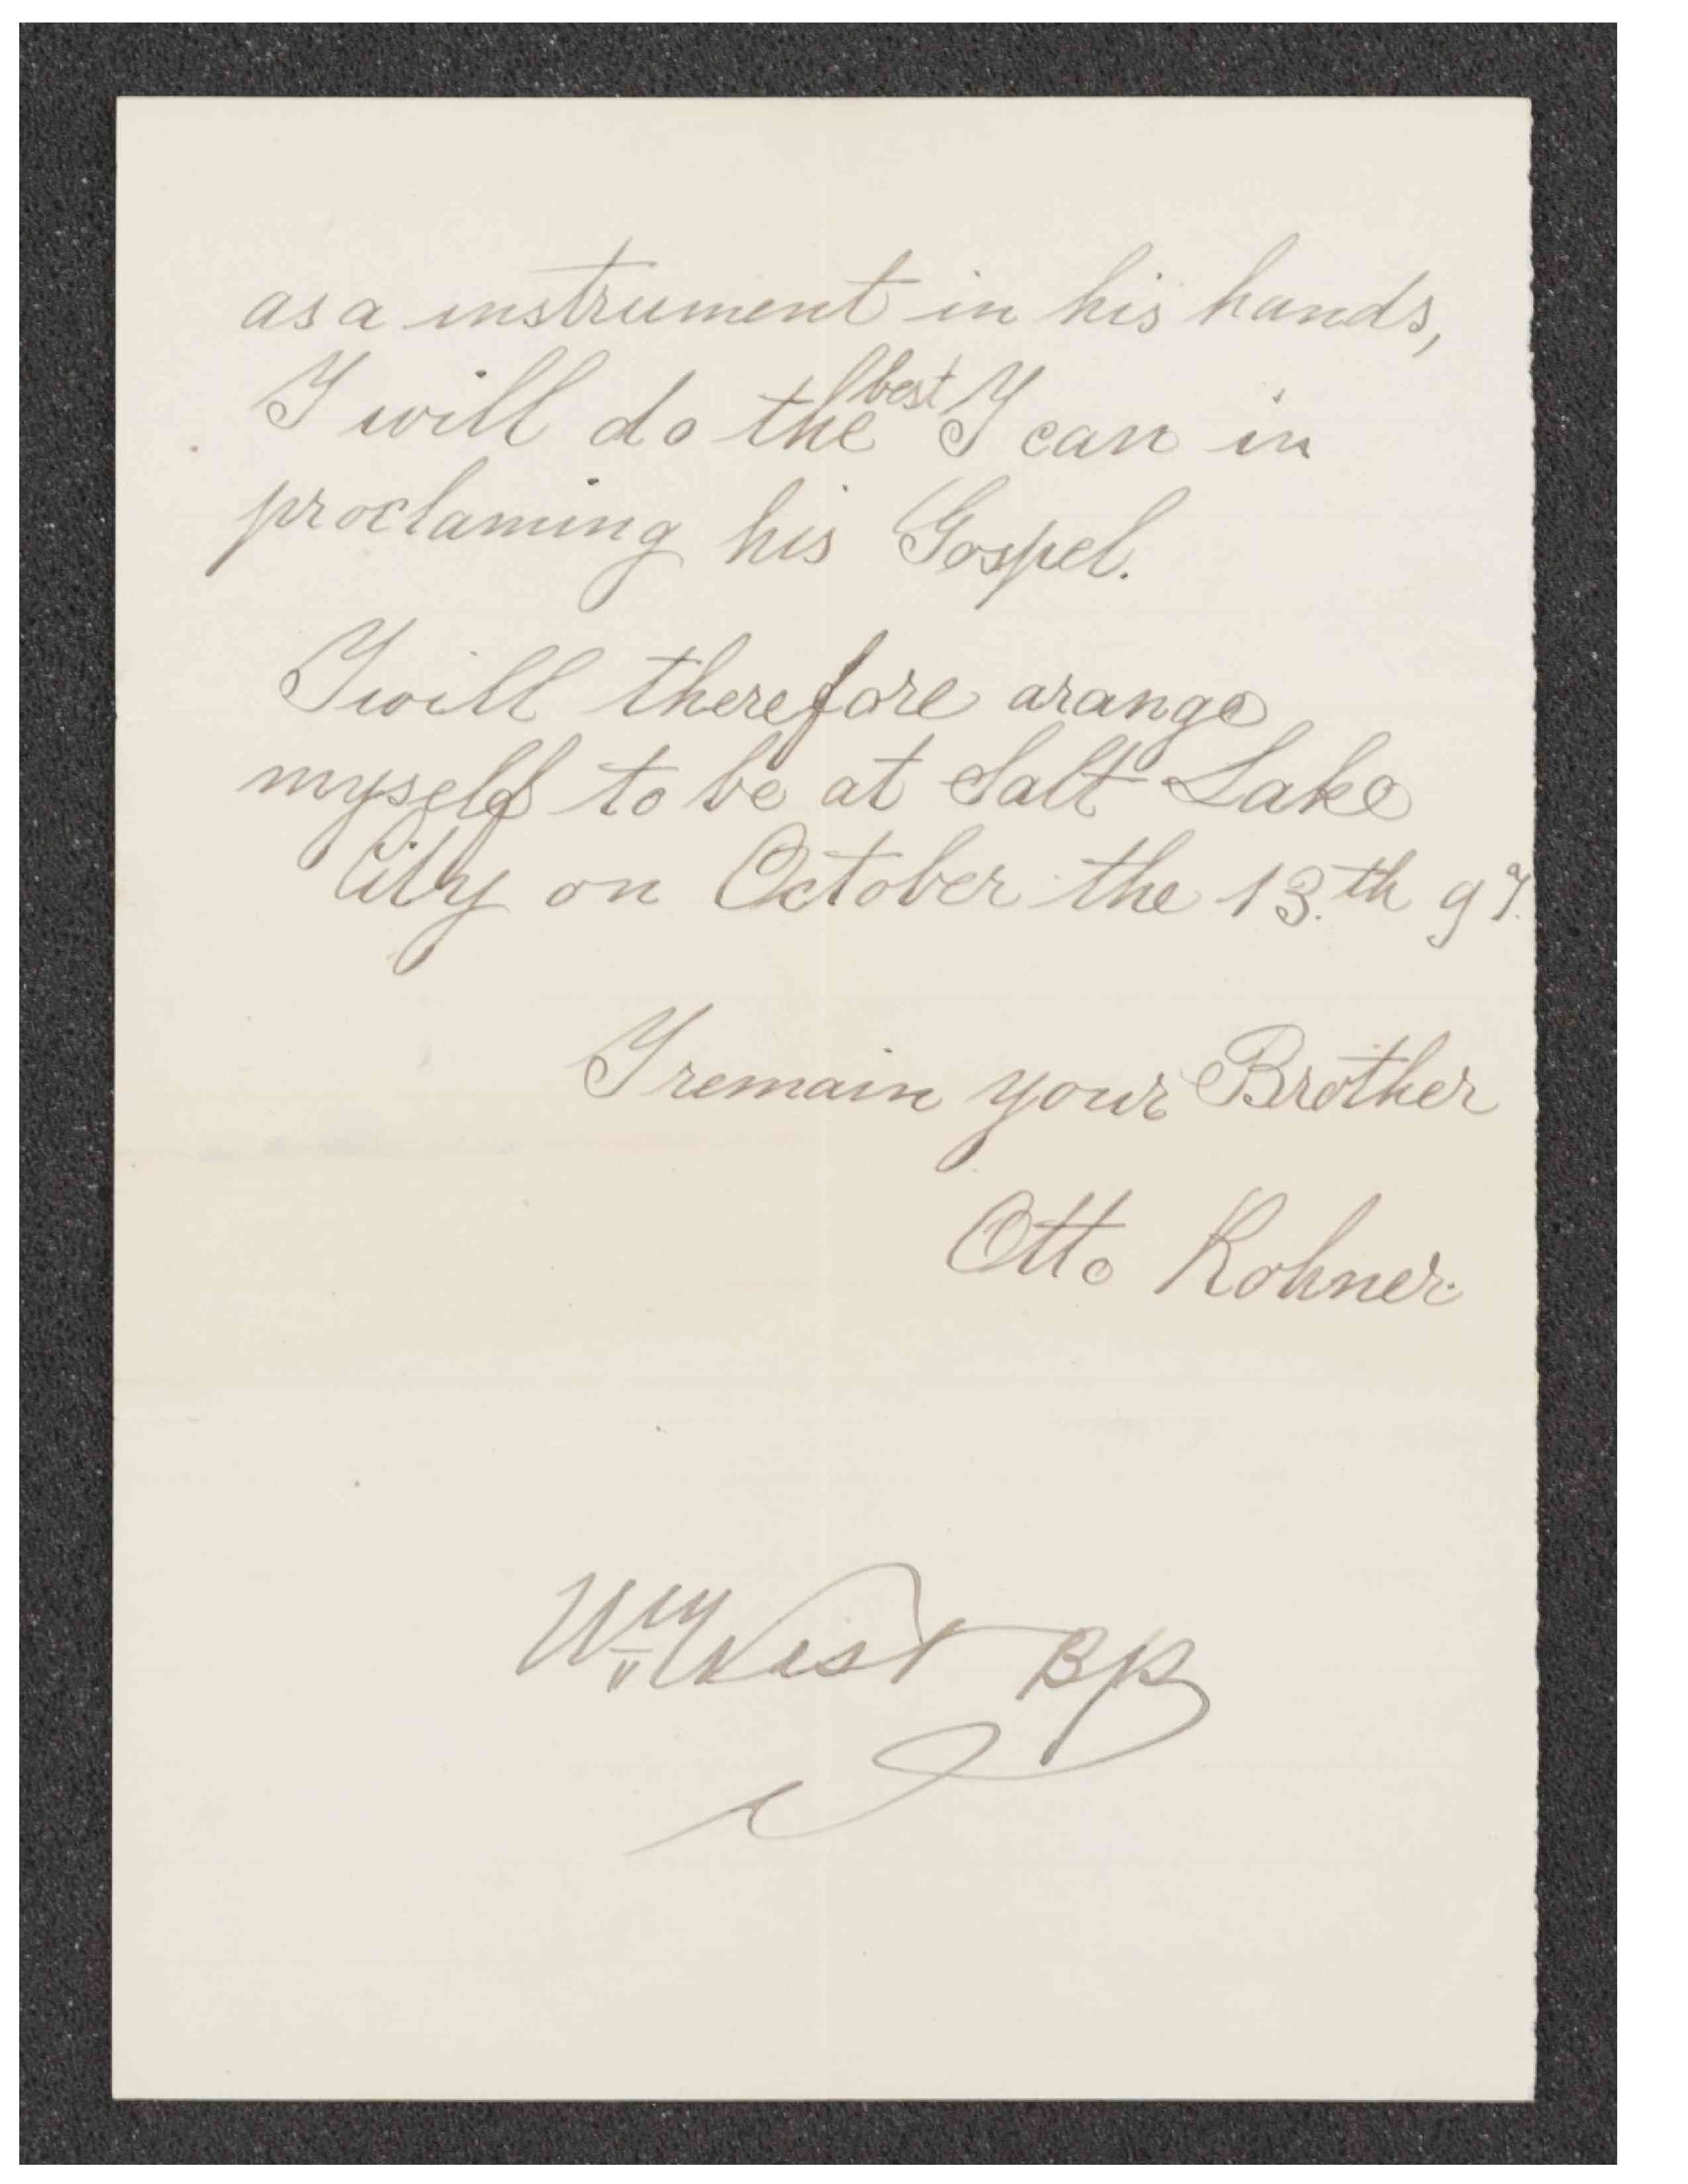 as a instrument in his hands,
I will do the best I can in
proclaming his Gospel.
I will therefore arange
myself to be at Salt Lake
City on October the 13.th 97.
I remain your Brother
Otto Rohner.
Wm West Bp